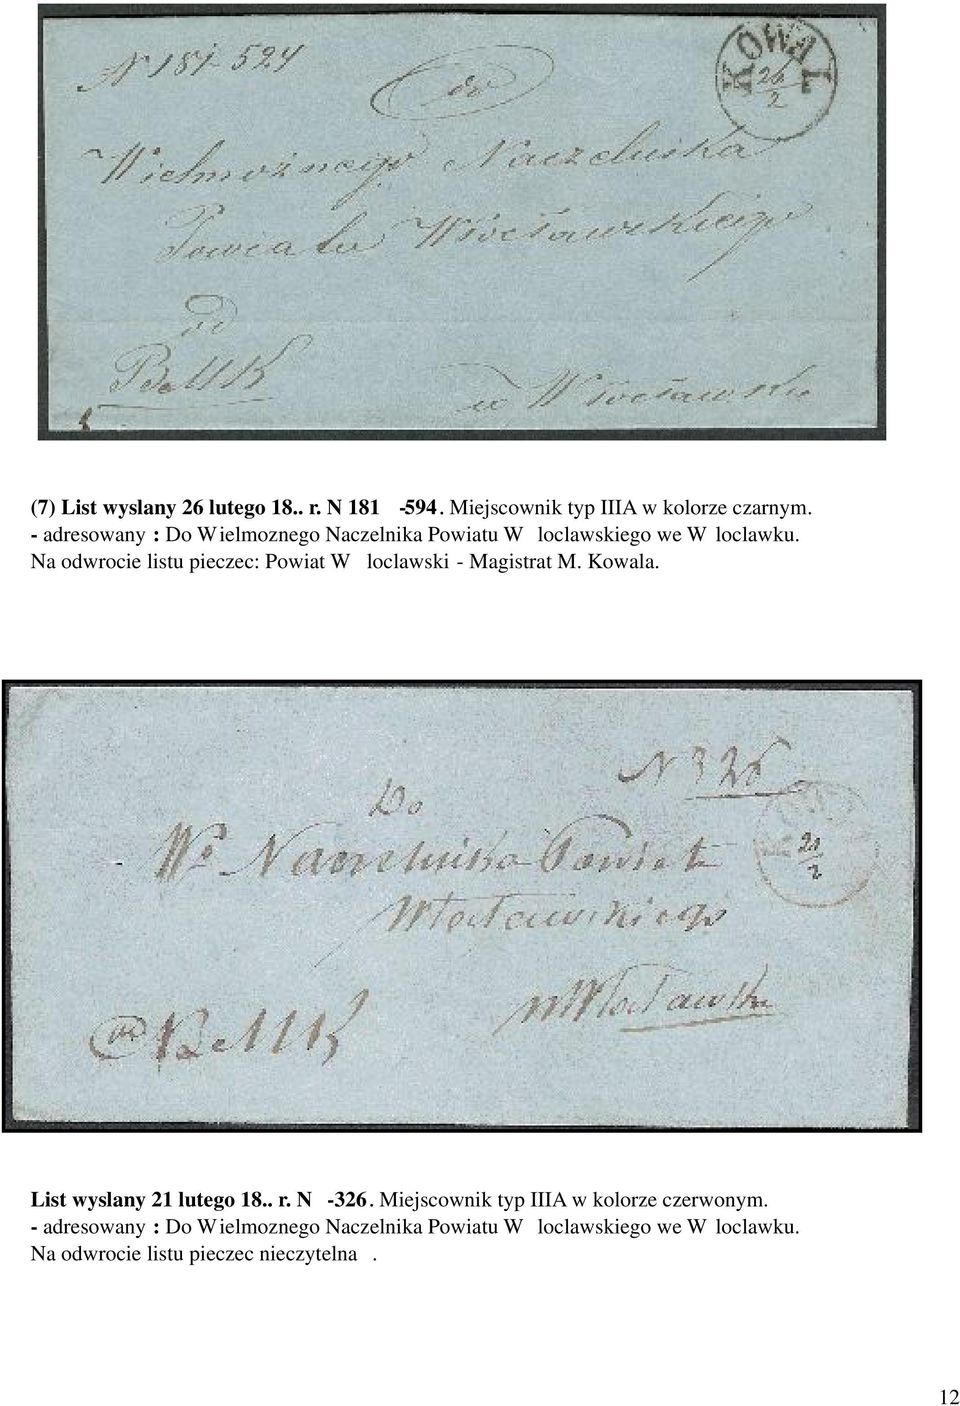 N 181-524
KOWAL
26/2
do
Wielmożnego Naczelnika
Powiatu Włocławskiego
w Włocławku
(7) List wyslany 26 lutego 18.. r. N 181 -594. Miejscownik typ IIIA w kolorze czarnym.
- adresowany : Do Wielmoznego Naczelnika Powiatu W loclawskiego we W loclawku.
Na odwrocie listu pieczec: Powiat W loclawski - Magistrat M. Kowala.
N 326
Do
21/2
Wo Naczelnika Powiatu
Włocławskiego
w Włocławku
List wyslany 21 lutego 18.. r. N -326. Miejscownik typ IIIA w kolorze czerwonym.
- adresowany : Do Wielmoznego Naczelnika Powiatu W loclawskiego we W loclawku.
Na odwrocie listu pieczec nieczytelna .
12